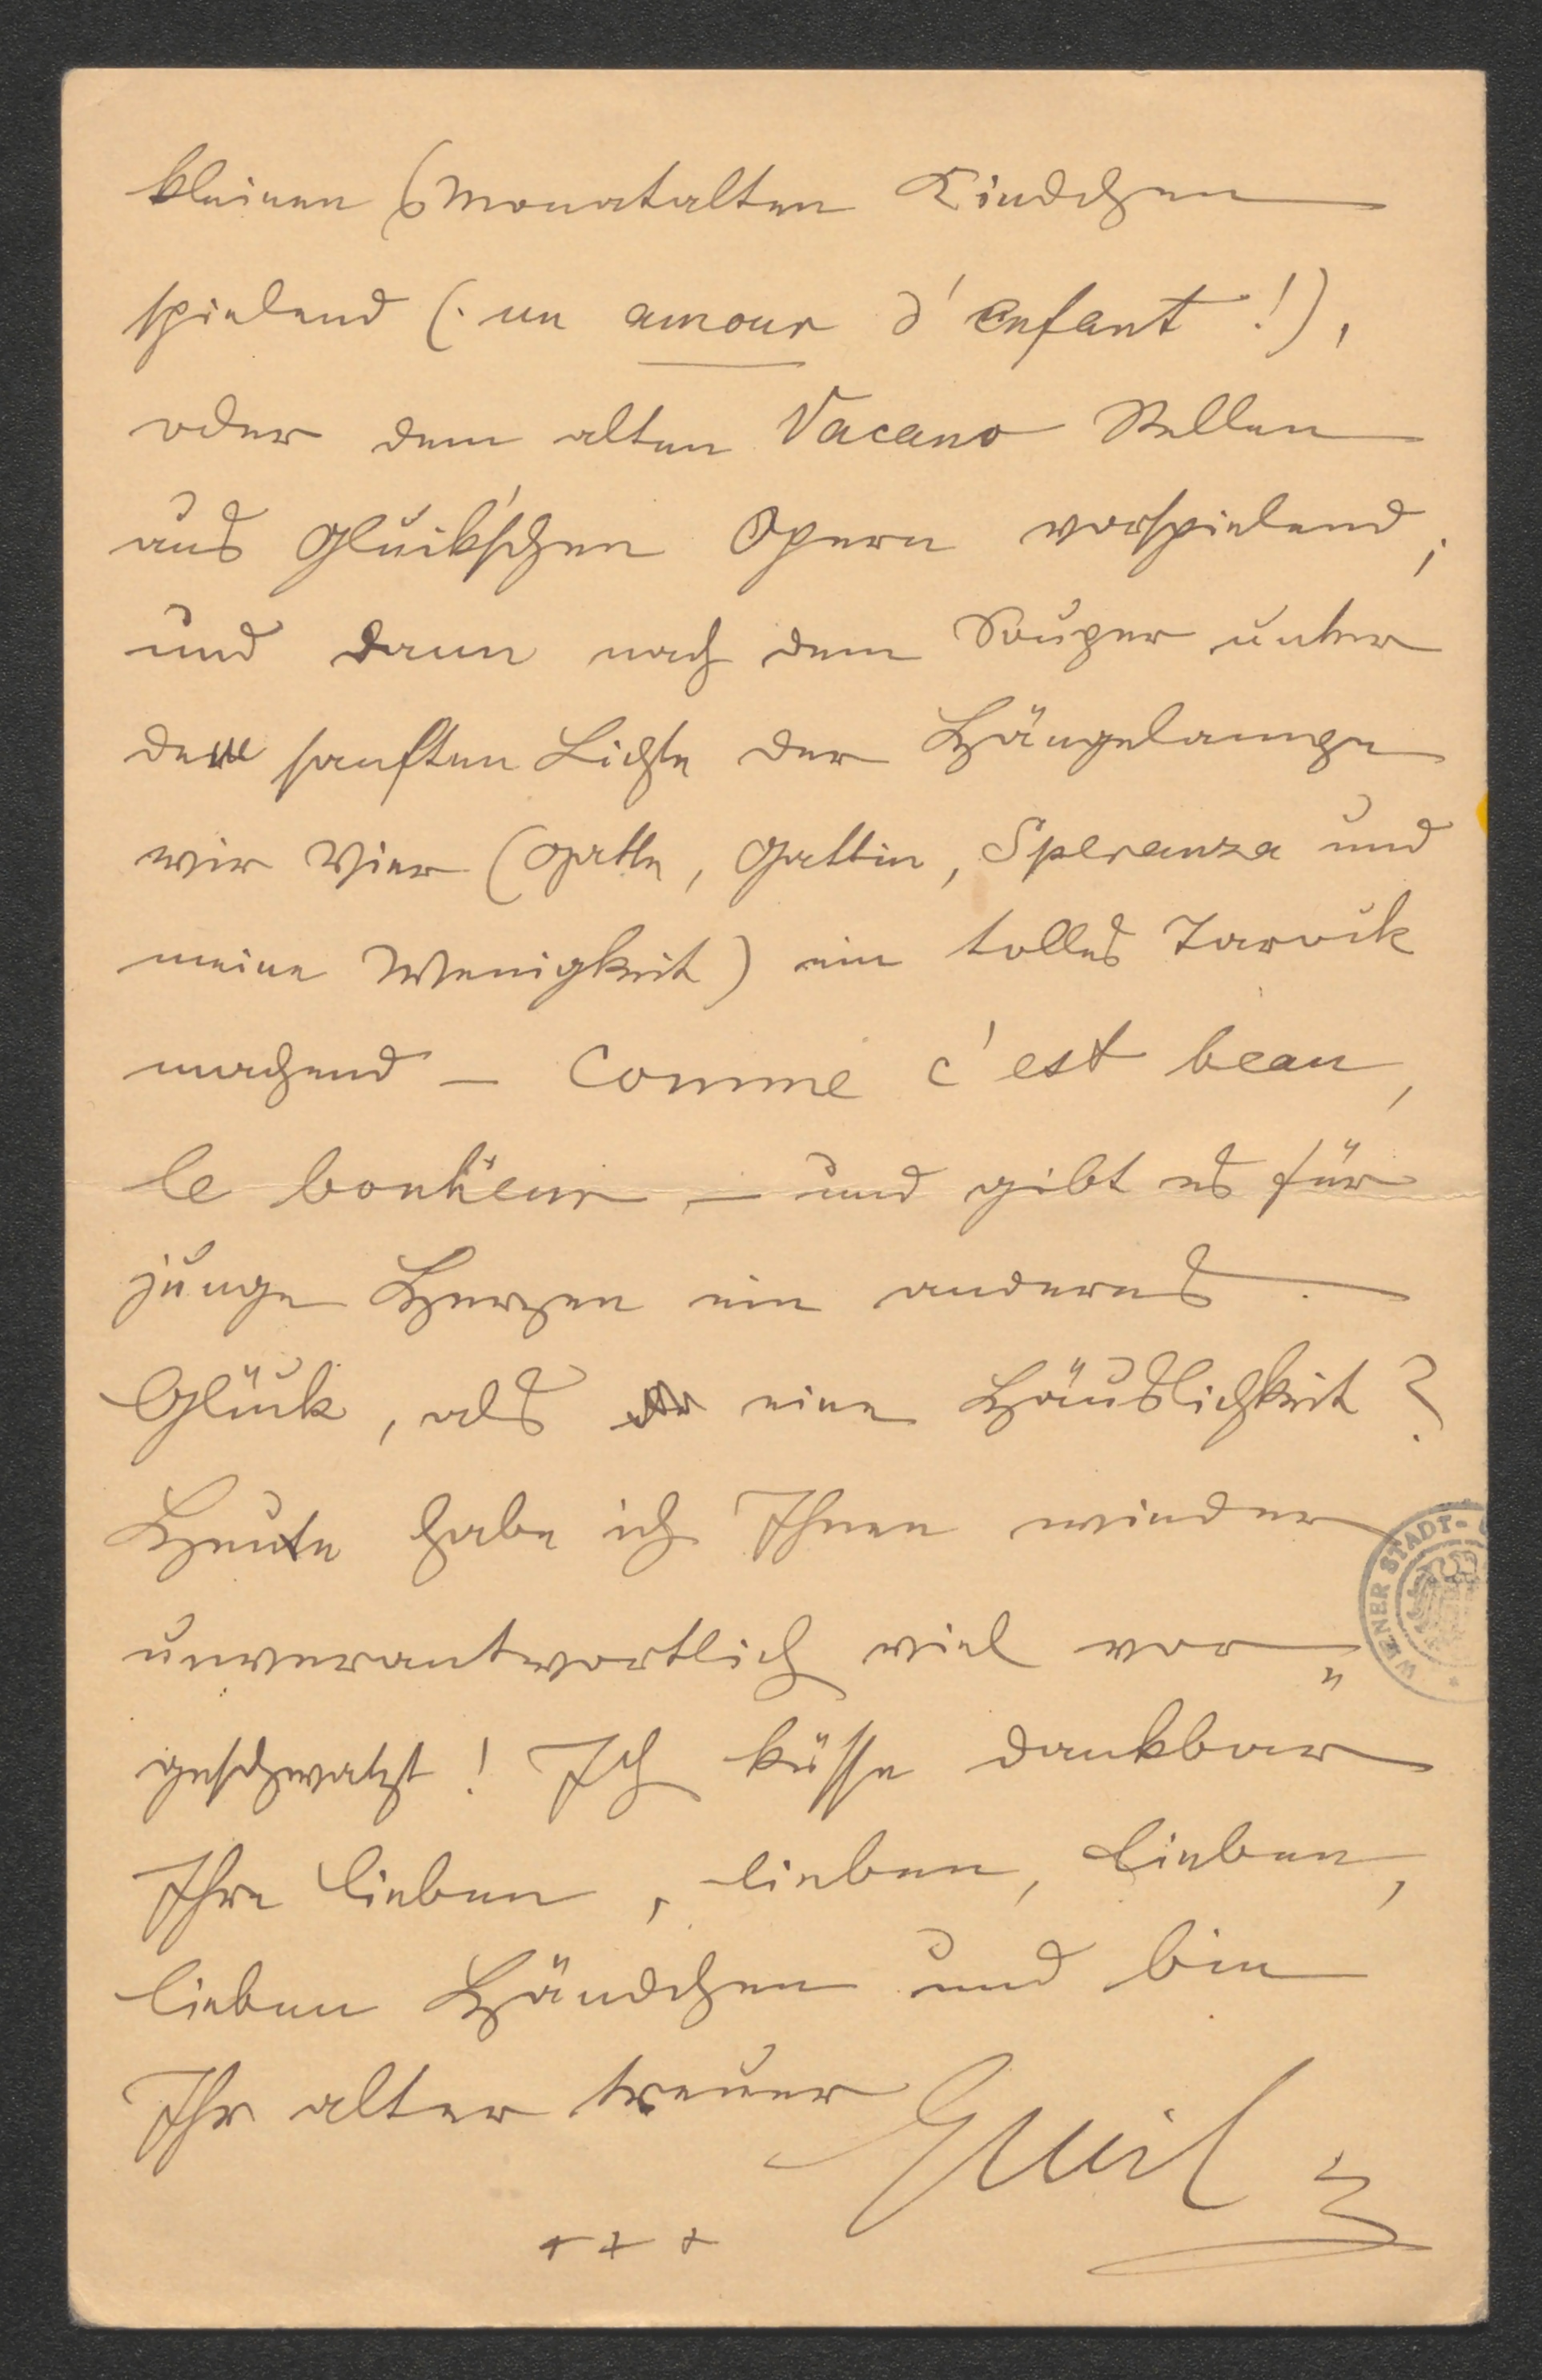 kleinen 6monatalten Kindchen
spielend (: un amour d'enfant!),
oder dem alten Vacano Stellen
aus Gluck'schen Opern vorspielend,
und dann nach dem Souper unter
dem sanften Lichte der Hängelampe
wir Vier (Gatte, Gattin, Speranza und
meine Wenigkeit) ein tolles Tarock
machend – Comme c'est beau,
le bonheur – und gibt es für
junge Herzen ein anderes
Glück, als eine Häuslichkeit?
Heute habe ich Ihnen wieder
unverantwortlich viel vor„
geschwatzt! Ich küsse dankbar
Ihre lieben, lieben, lieben,
lieben Händchen und bin
Ihr alter treuer Emil
+ + +
WIENER STADT-